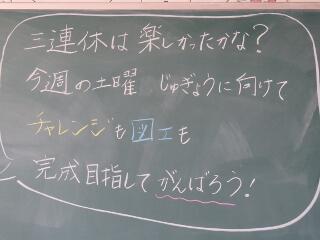 三連休は楽しかったかな?
今週の土曜 じゅぎょうに向けて
チャレンジも図工も
完成目指してがんばろう!